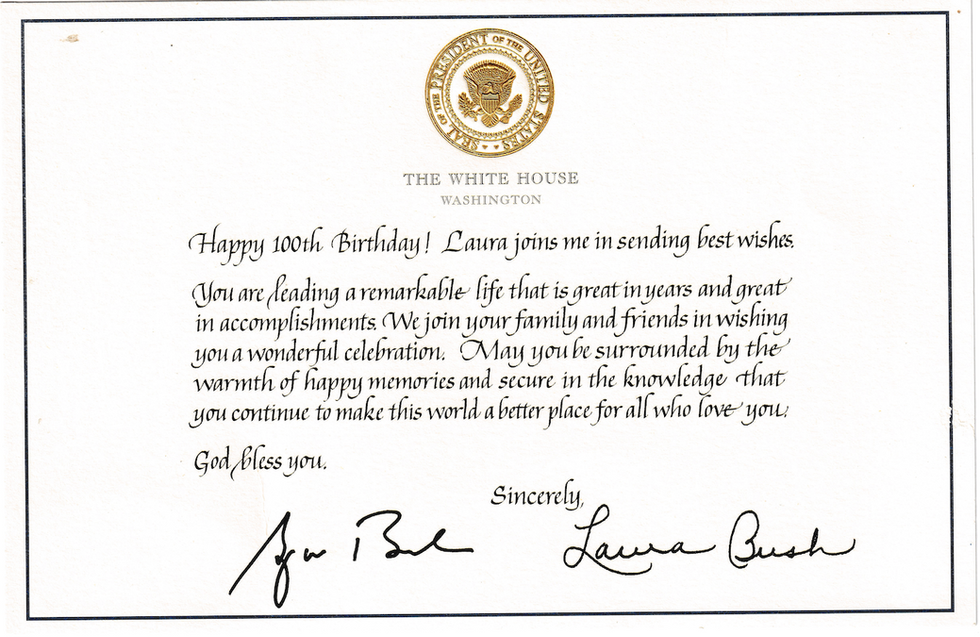 SEAL OF THE PRESIDENT OF THE UNITED STATES
THE WHITE HOUSE
WASHINGTON
Happy 100th Birthday! Laura joins me in sending best wishes.
You are leading a remarkable life that is great in years and great
in accomplishments. We join your family and friends in wishing
you a wonderful celebration. May you be surrounded by the
warmth of happy memories and secure in the knowledge that
you continue to make this world a better place for all who love you.
God bless you.
Sincerely,
Laura Bush